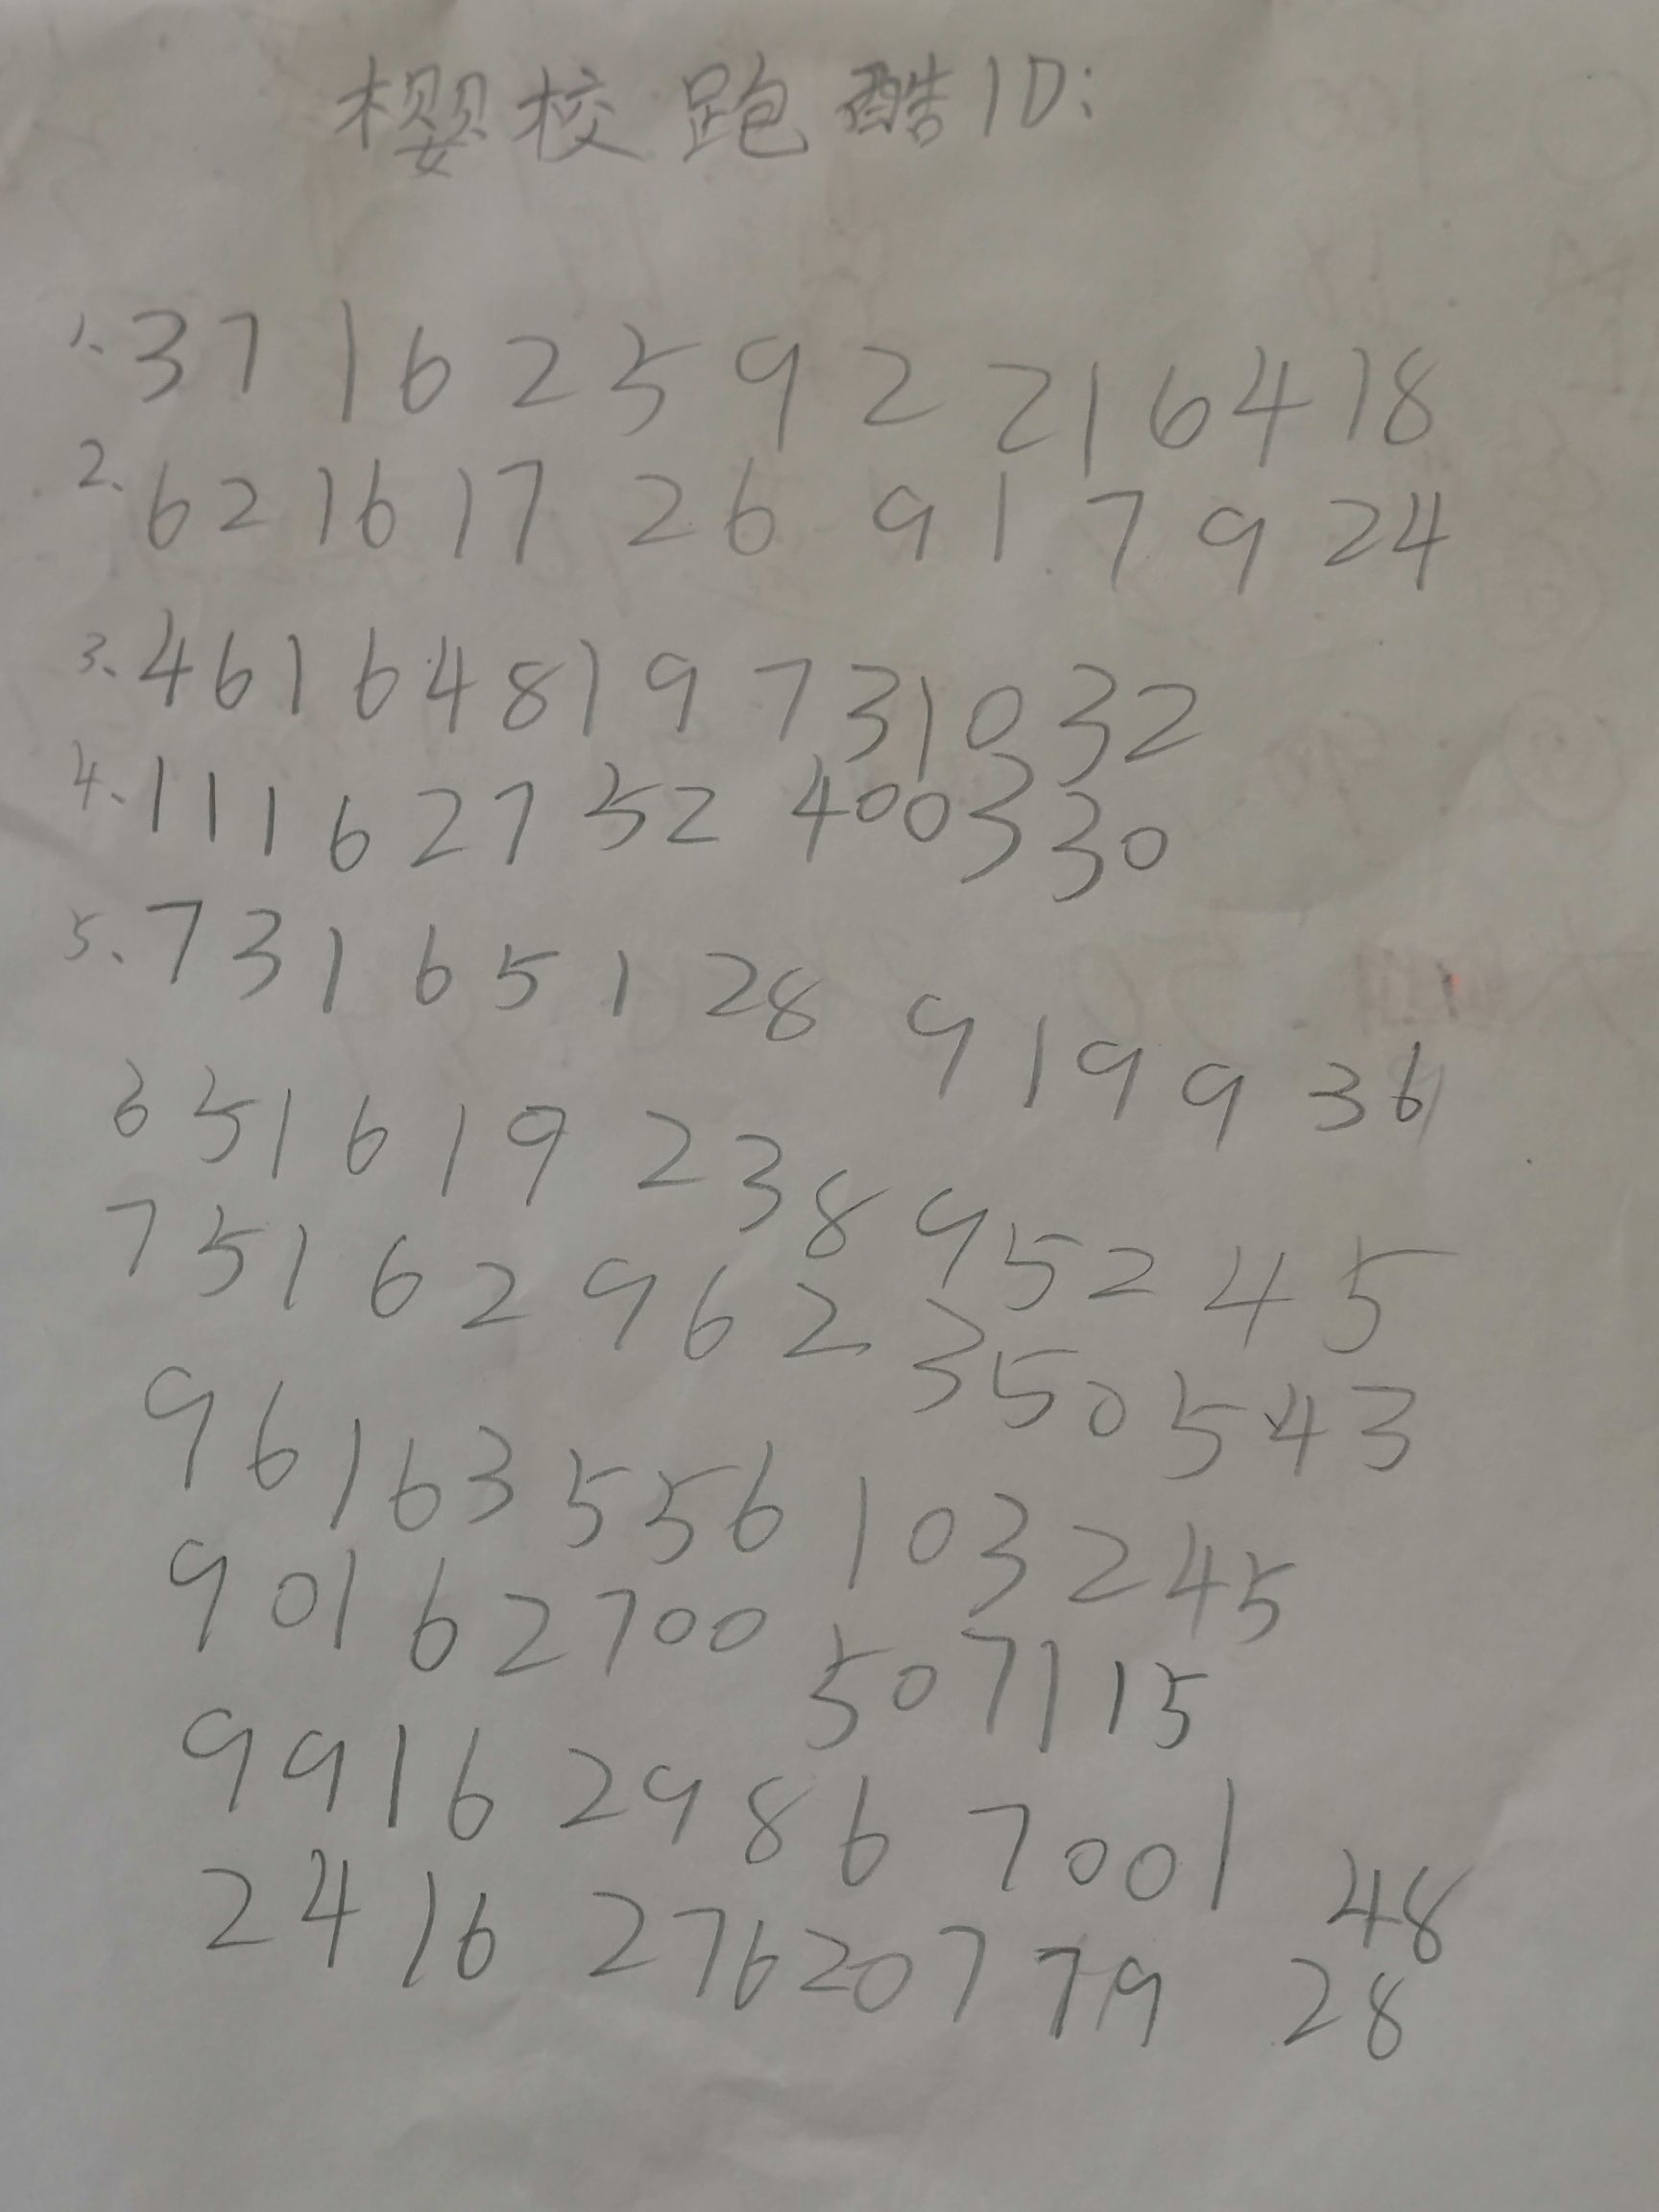 樱校跑酷ID:
1、37 16 25 9 2 216418
2、621617 26 91 7 9 24
3、46164819 731032
4、1116 27 52 400330
5、7316 5 1 28 9 19 9 36
6 5 1 6 19 2 3 8 9 5 2 4 5
7 5 1 6 2 9 6 2 3 5 0 5 4 3
9 6 1 6 3 5 5 6 1 0 3 2 4 5
9 01 6 2700 507115
9916 2986 7001 48
24 16 27620779 28